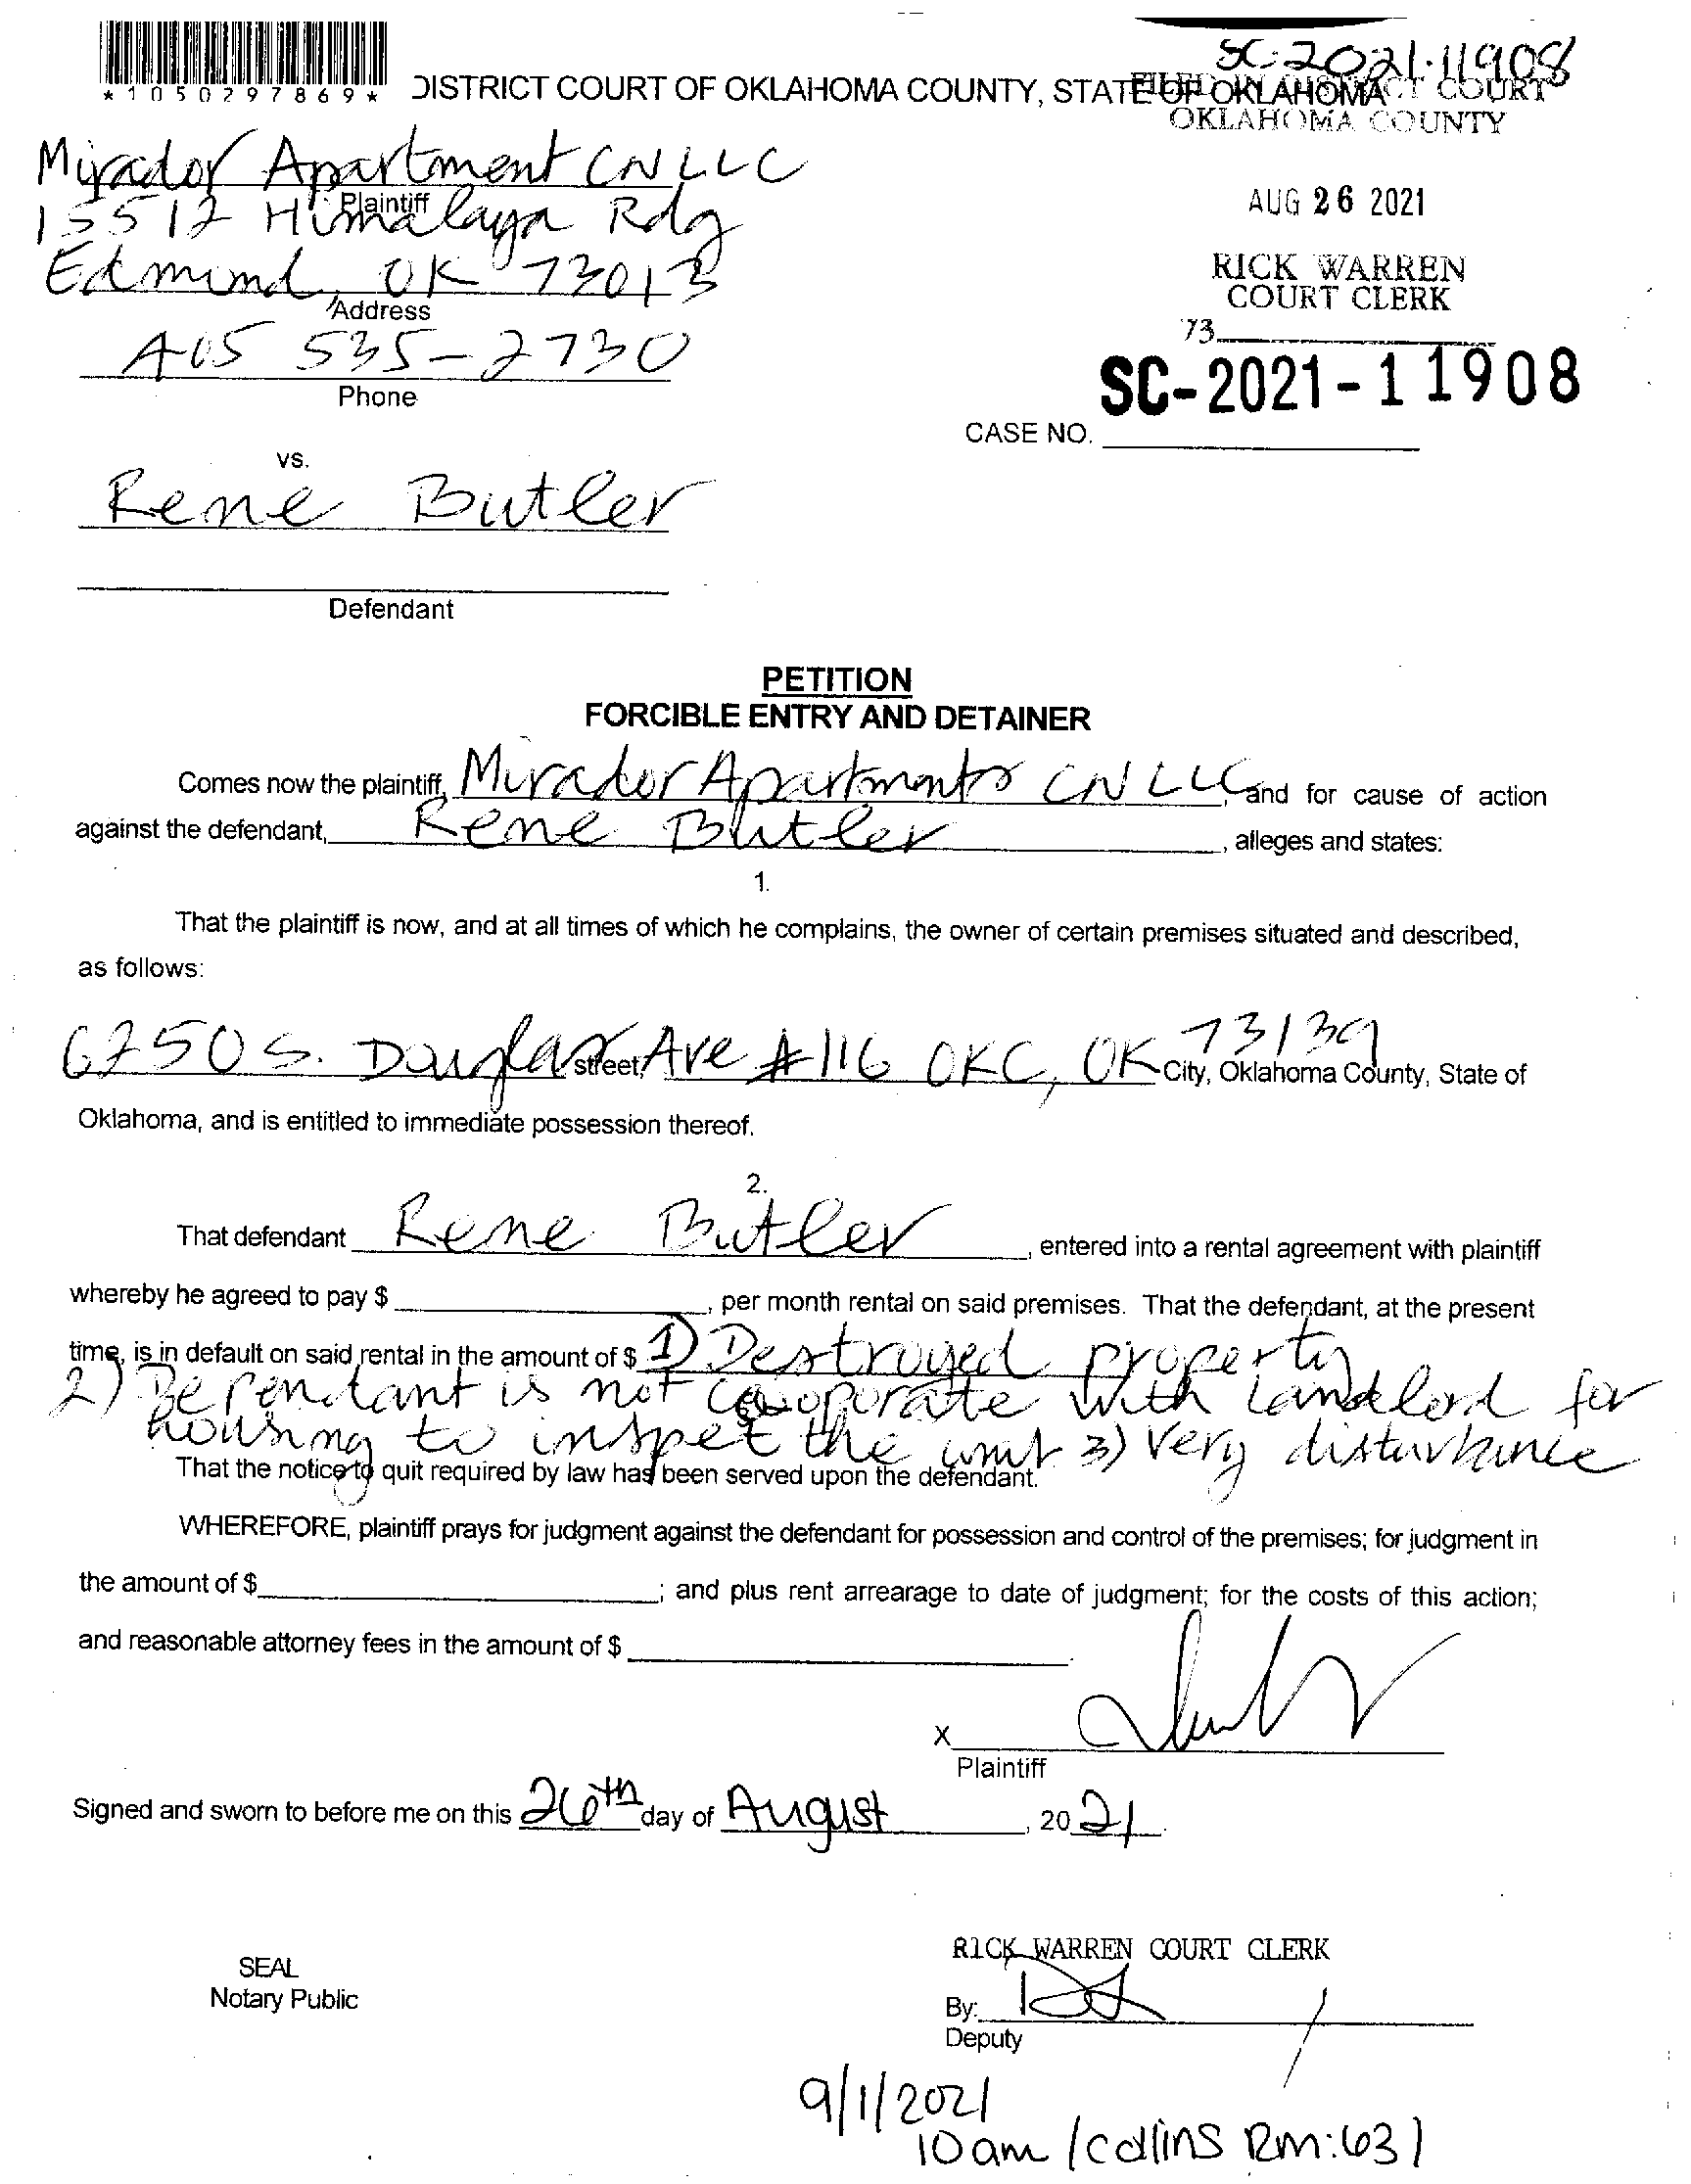 SC-2021-11908
*1050297869*
DISTRICT COURT OF OKLAHOMA COUNTY, STATE OF OKLAHOMA
FILED IN DISTRICT COURT
OKLAHOMA COUNTY
Mirador Apartment CN LLC
Plaintiff
15512 Himalaya Rdg
Edmond, OK 73013
Address
405 535-2730
Phone
AUG 26 2021
RICK WARREN
COURT CLERK
73
SC-2021-11908
CASE NO.
vs.
Rene Butler
Defendant
PETITION
FORCIBLE ENTRY AND DETAINER
Comes now the plaintiff, Mirador Apartments CN LLC, and for cause of action
against the defendant, Rene Butler, alleges and states:
1.
That the plaintiff is now, and at all times of which he complains, the owner of certain premises situated and described,
as follows:
6750 S. Douglas street, Ave #116 OKC, OK 73139 City, Oklahoma County, State of
Oklahoma, and is entitled to immediate possession thereof.
2.
That defendant Rene Butler, entered into a rental agreement with plaintiff
whereby he agreed to pay $ , per month rental on said premises. That the defendant, at the present
time, is in default on said rental in the amount of $ 1) Destroyed property
2) Defendant is not cooporate with Landlord for
housing to inspet the unit 3) Very disturbance
That the notice to quit required by law has been served upon the defendant.
WHEREFORE, plaintiff prays for judgment against the defendant for possession and control of the premises; for judgment in
the amount of $ ; and plus rent arrearage to date of judgment; for the costs of this action;
and reasonable attorney fees in the amount of $ .
X
Plaintiff
Signed and sworn to before me on this 26th day of August, 2021.
SEAL
Notary Public
RICK WARREN COURT CLERK
By:
Deputy
9/1/2021
10am / Collins Rm:631